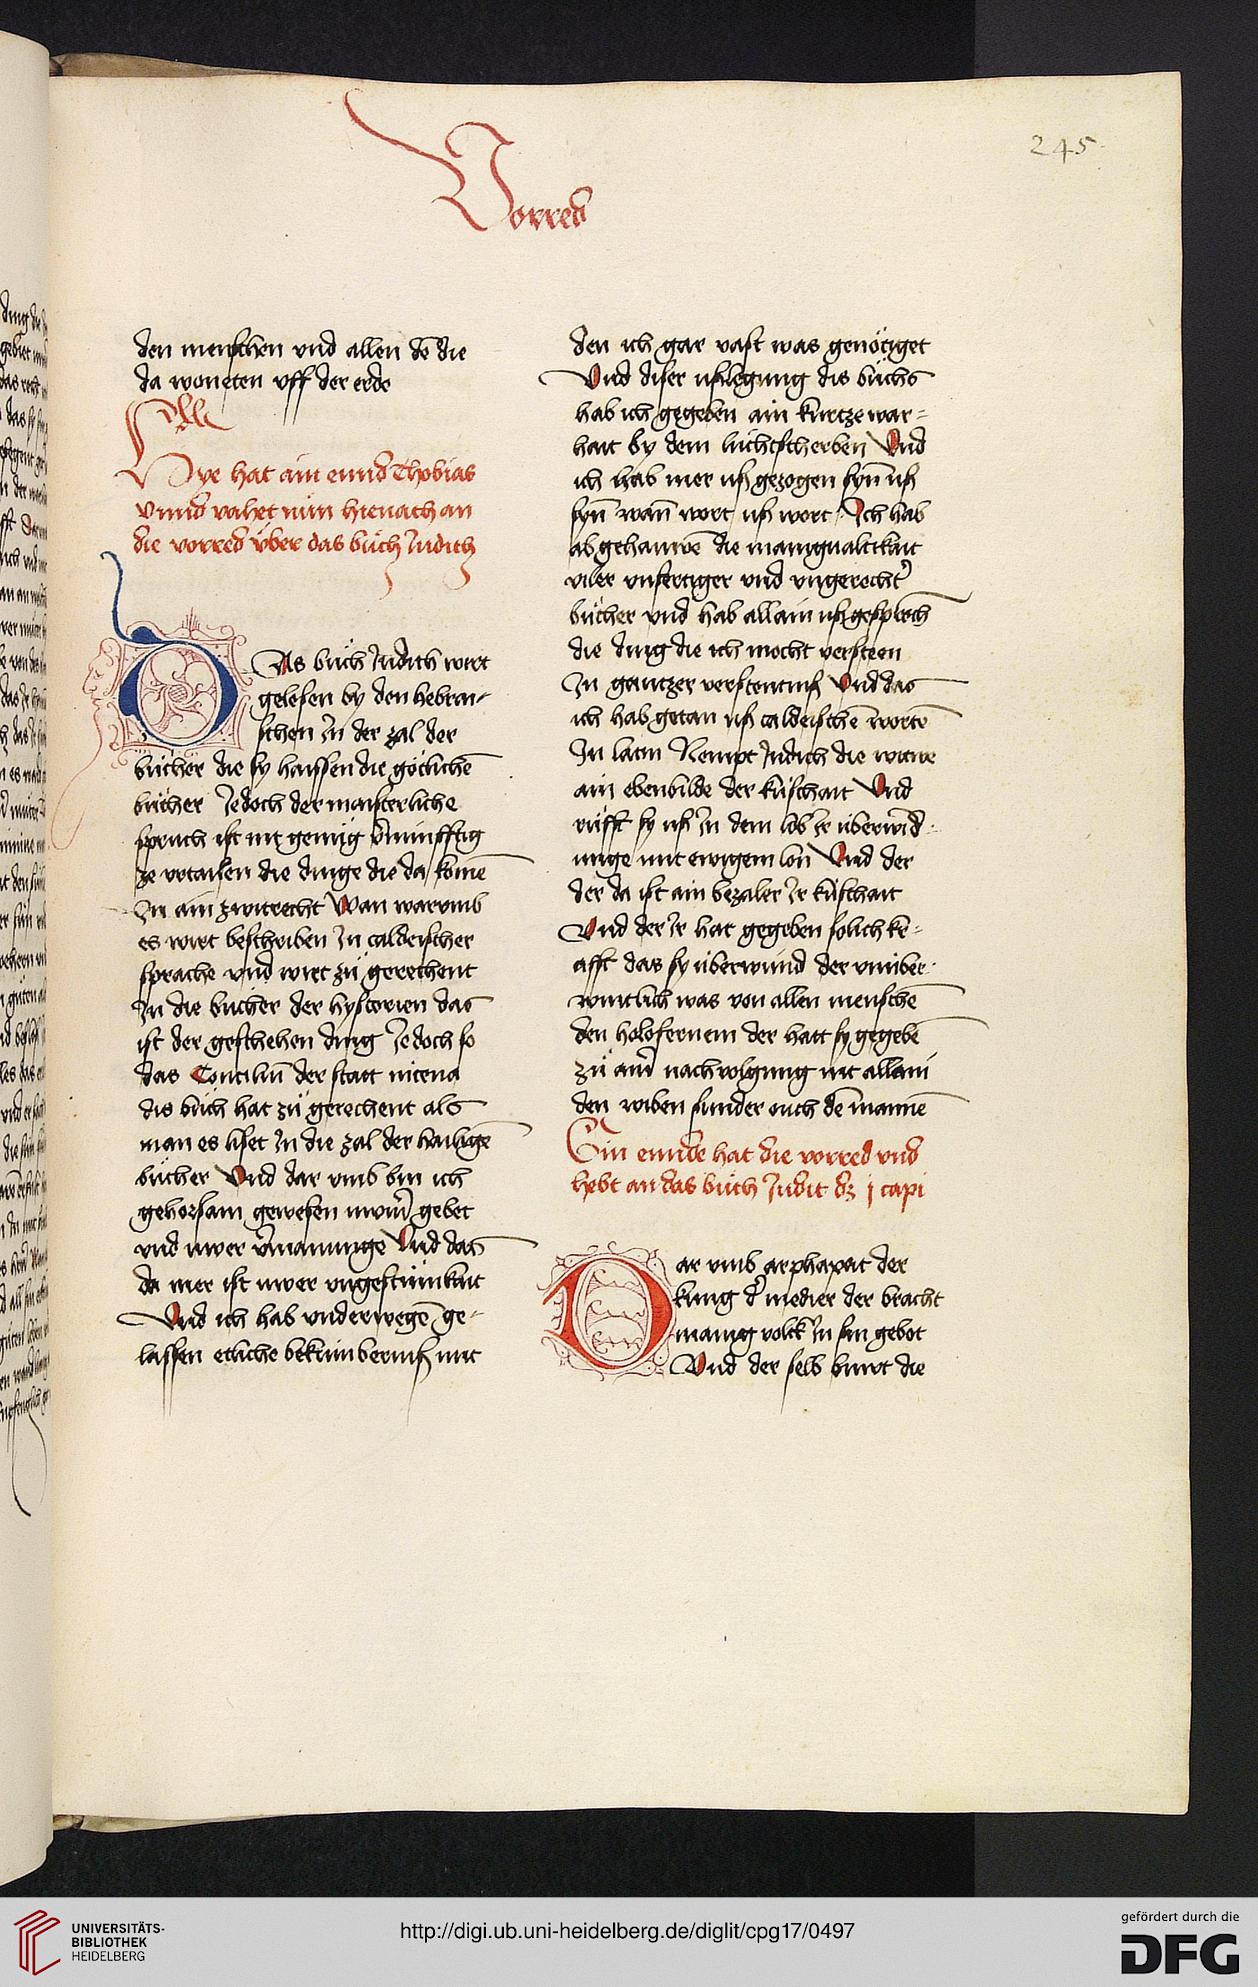 245
Vorred
den menschen vnd allen dē die
da woneten vff der erde
Hye hat ain ennd Thobias
vnnd vahet nún hienach an
die vorred v̈ber das bůch Judith
DAs bůch Judith wirt
gelesen by den hebrai-
schen Jn der zal der
bücher die sy haissen die götlichē
bücher Jedoch der maisterliche
spruch ist nit genüg v̄nünfftig
ze vrtailen die dinge die da komē
Jn ain zwitrecht Wan warumb
es wirt beschriben Jn caldeischer
sprache vnd wirt zů gerechent
Jn die bücher der hystorien das
ist der geschehen ding Jedoch so
das Conciliū der statt nicena
dis bůch hat zů gerechent als
man es liset Jn die zal der hailigē
bücher Vnd dar vmb bin ich
gehorsam gewesen uwerm gebet
vnd uwer v̄manunge Vnd das
da mer ist uwer vngestümkait
Vnd ich hab vnderwegē ge-
lassen etliche bekümberniß mit
den ich gar vast was genötiget
Vnd diser ußlegung dis bůchs
hab ich gegeben ain kurtze war-
hait by dem liechtscherben Vnd
ich hab mer uß gezogen synn̄ uß
synn̄ wann̄ wort uß wort Ich hab
ab gehauwē die manigualtikait
viler vnfertiger vnd vngerechter
bücher vnd hab allain uß gesprch
die ding die ich mocht versteen
Jn gantzer verstentniß Vnd das
ich hab getan uß caldeischē wortē
Jn latin Nempt Judith die witwe
ain ebenbilde der küschait Vnd
rüfft sy uß Jn dem lob Jr überwind-
unge mit ewigem lon Vnd der
der da ist ain bezaler Jr küschait
Vnd der Jr hat gegeben solich kr-
afft das sy überwünd der vnüber-
wintlich was von allen menschē
den holofernem der hatt sy gegebē
zů ainer nachvolgung nit allain
den wiben sunder ouch dē mannē
Ein ennde hat die vorred vnd
hebt an das bůch Judit dz j capi
Dar vmb arphaxat der
kúng d' medier der bracht
manig volck Jn sin gebot
Vnd der selb buwt die
UNIVERSITÄTS-
BIBLIOTHEK
HEIDELBERG
http://digi.ub.uni-heidelberg.de/diglit/cpg17/0497
gefördert durch die
DFG